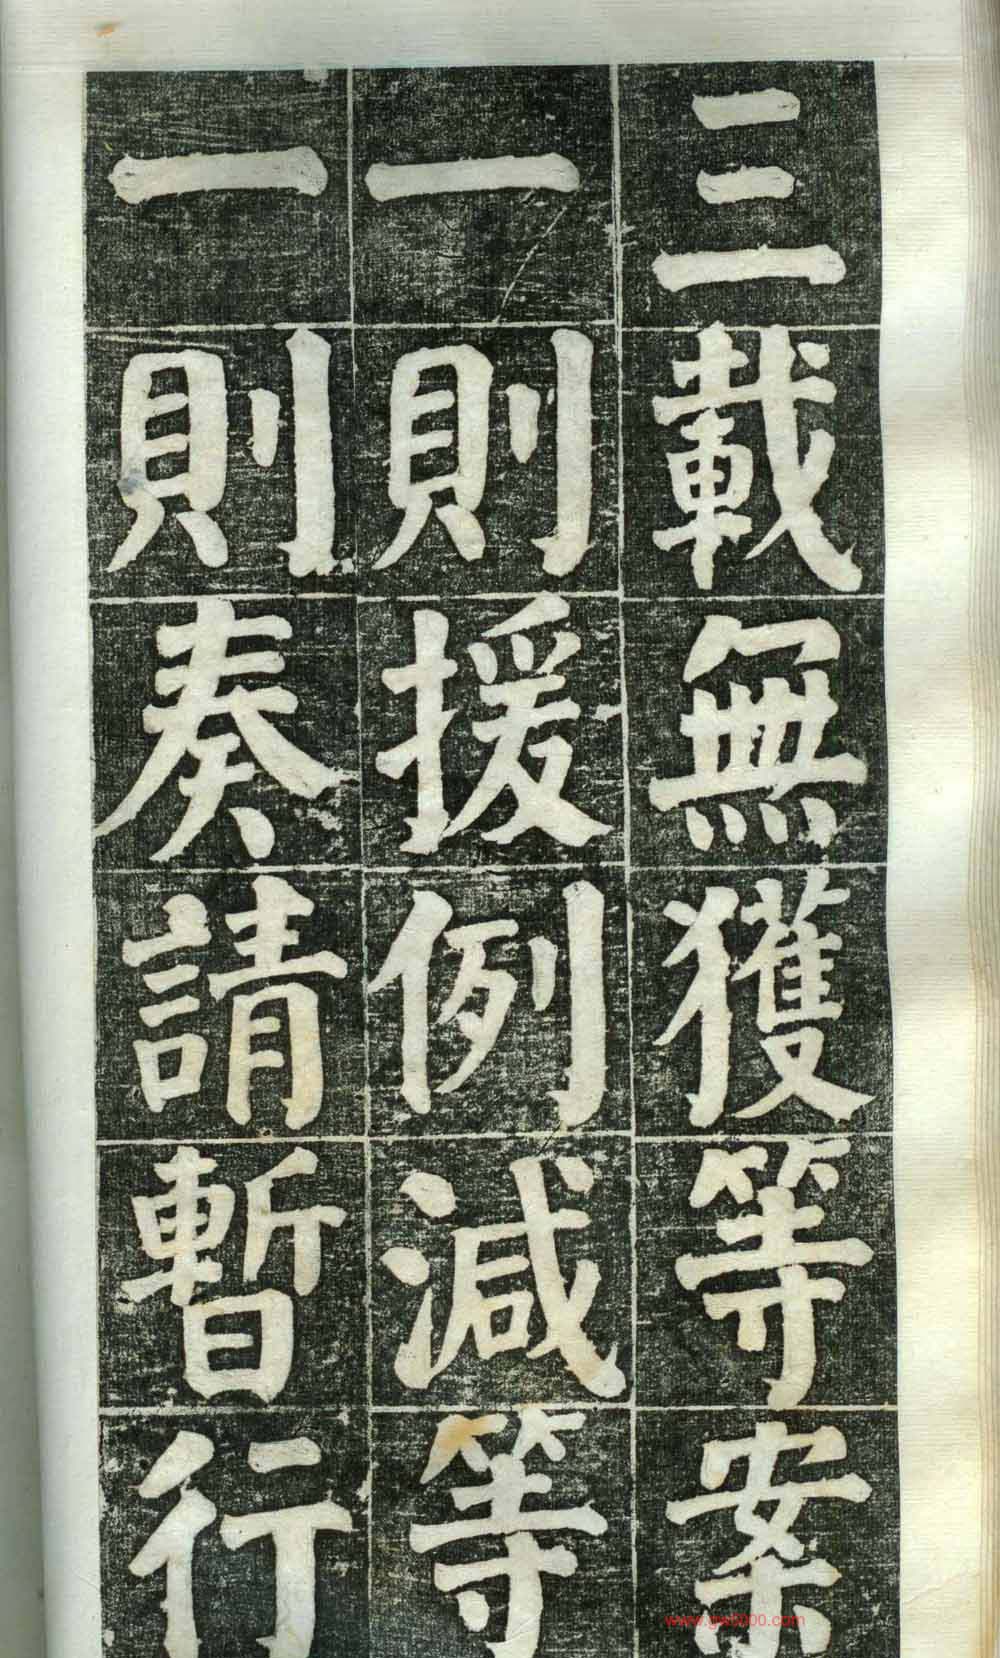 三載無獲等案
一則援例減等
一則奏請暫行
www.gw8000.com